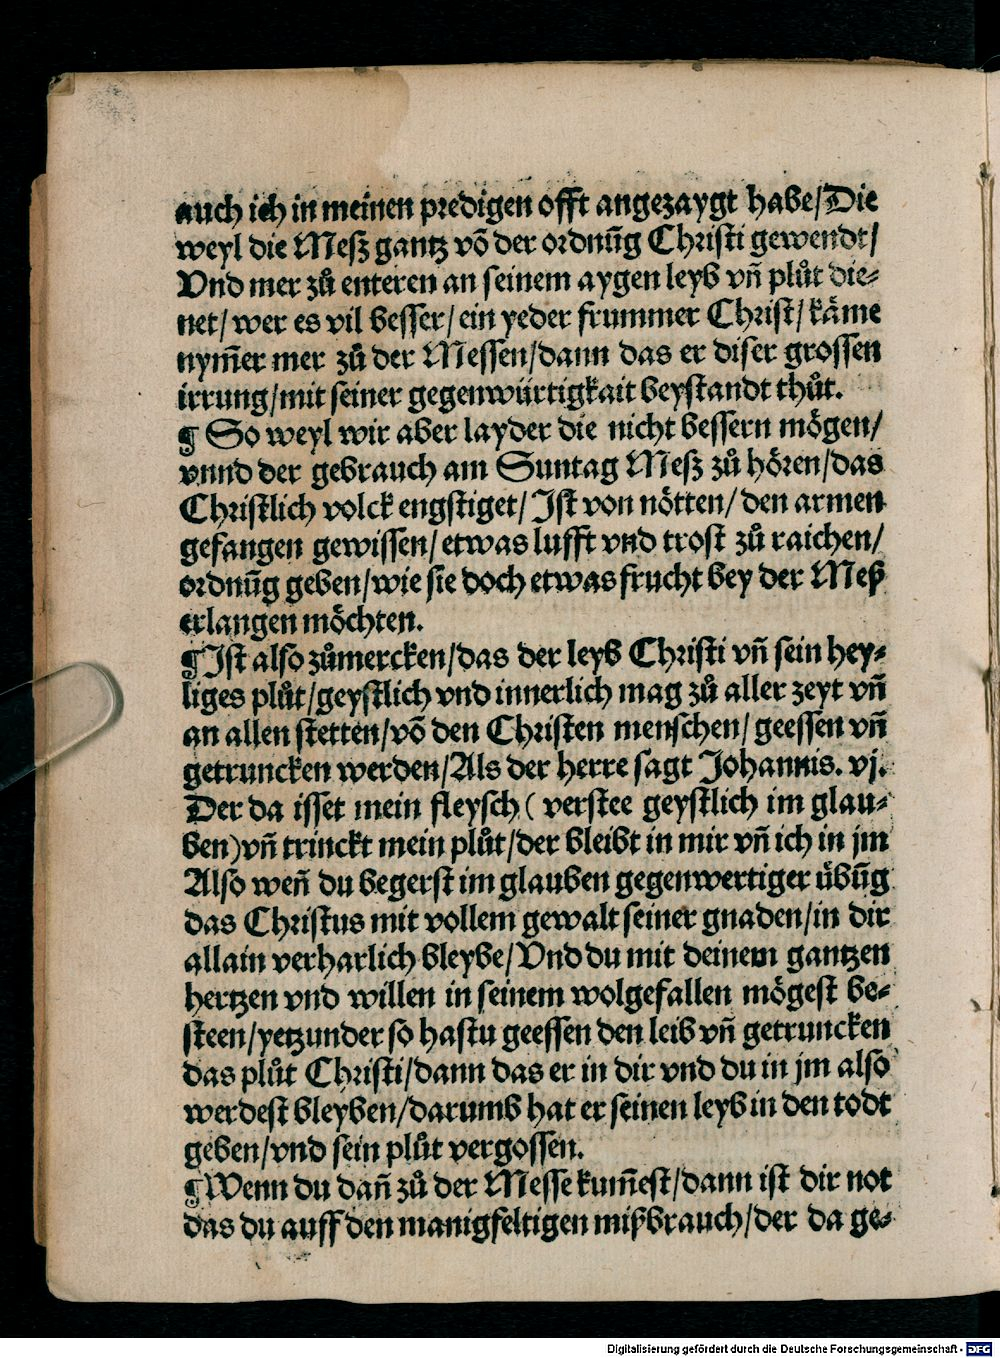 auch ich in meinen predigen offt angezaygt habe/Die
weyl die Meſz gantz võ der ordnũg Chriſti gewendt/
Vnd mer zů enteren an ſeinem aygen leyb vñ plůt die⸗
net/wer es vil beſſer/ein yeder frummer Chriſt/kaͤme
nym̃er mer zů der Meſſen/dann das er diſer groſſen
irrung/mit ſeiner gegenwürtigkait beyſtandt thůt.
¶ So weyl wir aber layder die nicht beſſern moͤgen/
vnnd der gebrauch am Suntag Meſz zů hoͤren/das
Chriſtlich volck engſtiget/Iſt von noͤtten/den armen
gefangen gewiſſen/etwas lufft vnd troſt zů raichen/
ordnũg geben/wie ſie doch etwas frucht bey der Meß
erlangen moͤchten.
¶Iſt alſo zůmercken/das der leyb Chriſti vñ ſein hey⸗
liges plůt/geyſtlich vnd innerlich mag zů aller zeyt vñ
an allen ſtetten/võ den Chriſten menſchen/geeſſen vñ
getruncken werden/Als der herre ſagt Johannis. vj.
Der da iſſet mein fleyſch (verſtee geyſtlich im glau⸗
ben)vñ trinckt mein plůt/der bleibt in mir vñ ich in jm
Alſo weñ du begerſt im glauben gegenwertiger uͤbũg
das Chriſtus mit vollem gewalt ſeiner gnaden/in dir
allain verharlich bleybe/Vnd du mit deinem gantzen
hertzen vnd willen in ſeinem wolgefallen moͤgeſt be⸗
ſteen/yetzunder ſo haſtu geeſſen den leib vñ getruncken
das plůt Chriſti/dann das er in dir vnd du in jm alſo
werdeſt bleyben/darumb hat er ſeinen leyb in den todt
geben/vnd ſein plůt vergoſſen.
¶Wenn du dañ zů der Meſſe kum̃eſt/dann iſt dir not
das du auff den manigfeltigen mißbrauch/der da ge⸗
Digitalisierung gefördert durch die Deutsche Forschungsgemeinschaft - DFG